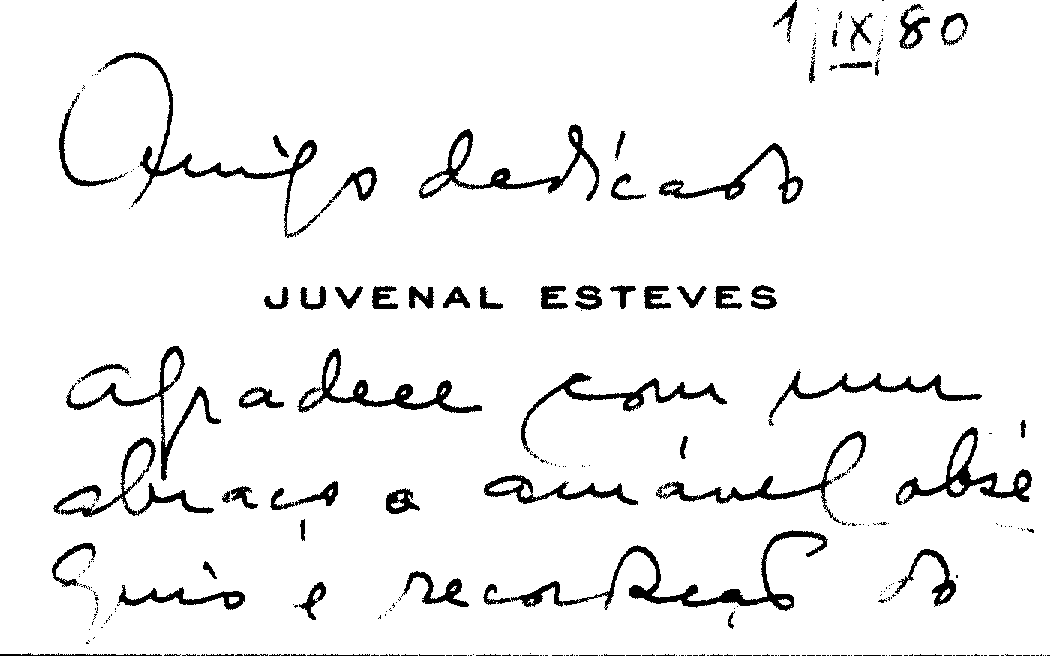 1/IX/80
Amigo dedicado
JUVENAL ESTEVES
agradece com um
abraço o amável obsé
quio e recordação do